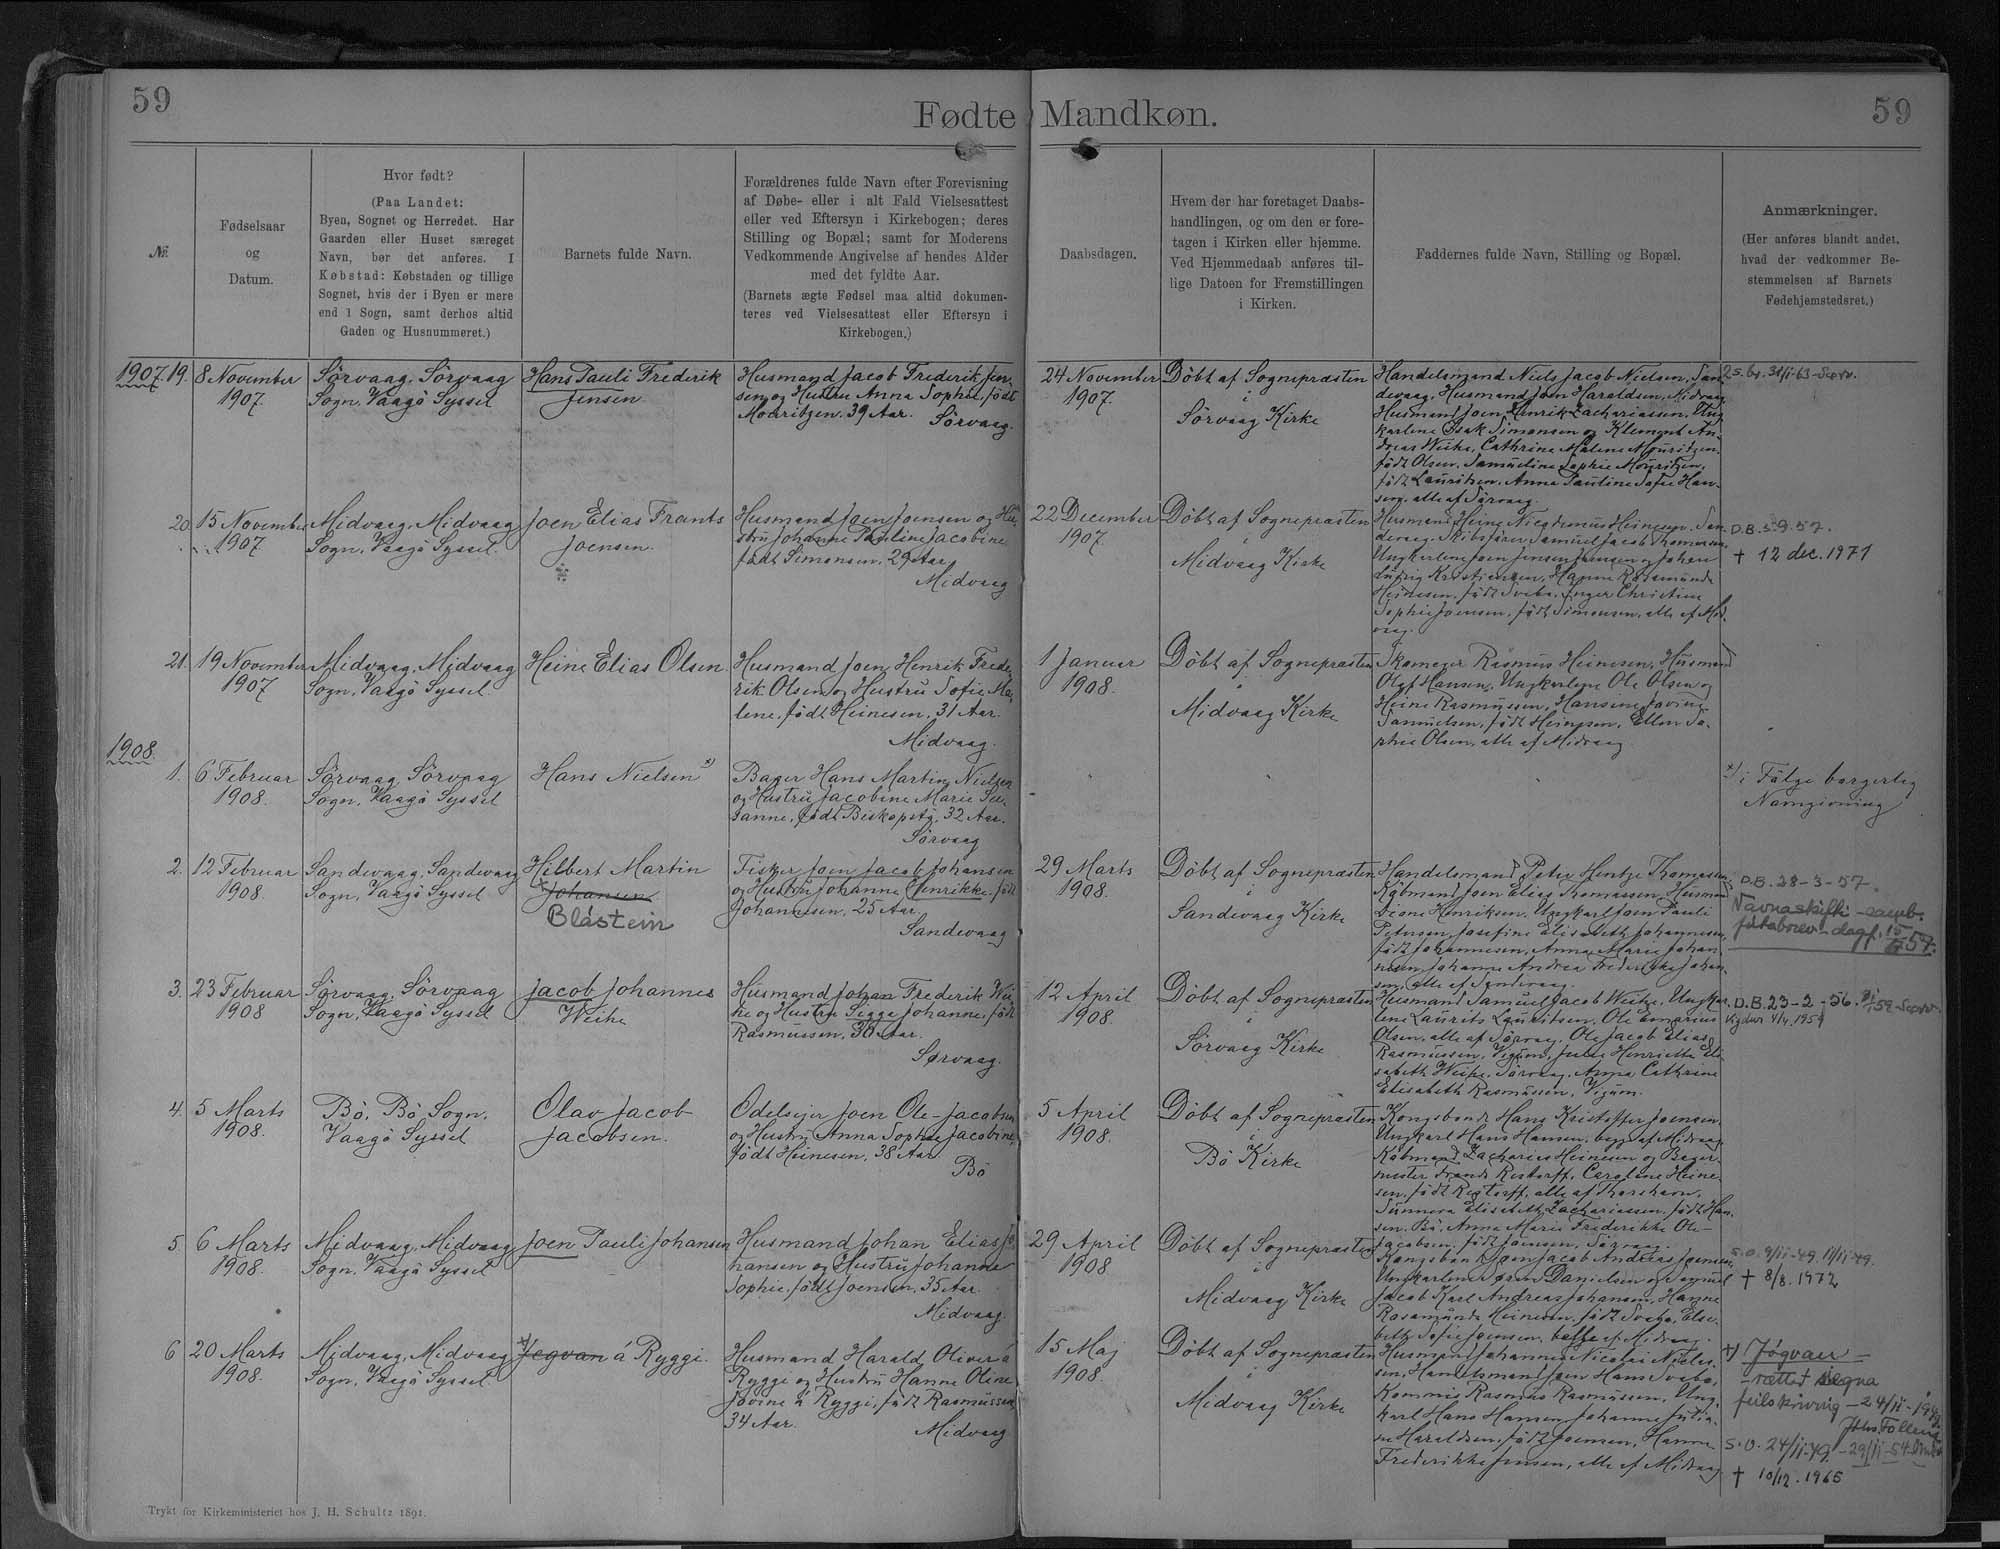 59
Fødte Mandkøn.
59
№
Fødselsaar
og
Datum.
Hvor født?
(Paa Landet:
Byen, Sognet og Herredet. Har
Gaarden eller Huset særeget
Navn, bør det anføres. I
Købstad: Købstaden og tillige
Sognet, hvis der i Byen er mere
end 1 Sogn, samt derhos altid
Gaden og Husnummeret.)
Barnets fulde Navn.
Forældrenes fulde Navn efter Forevisning
af Døbe- eller i alt Fald Vielsesattest
eller ved Eftersyn i Kirkebogen; deres
Stilling og Bopæl; samt for Moderens
Vedkommende Angivelse af hendes Alder
med det fyldte Aar.
(Barnets ægte Fødsel maa altid dokumen-
teres ved Vielsesattest eller Eftersyn i
Kirkebogen.)
Daabsdagen.
Hvem der har foretaget Daabs-
handlingen, og om den er fore-
tagen i Kirken eller hjemme.
Ved Hjemmedaab anføres til-
lige Datoen for Fremstillingen
i Kirken.
Faddernes fulde Navn, Stilling og Bopæl.
Anmærkninger.
(Her anføres blandt andet,
hvad der vedkommer Be-
stemmelsen af Barnets
Fødehjemstedsret.)
1907. 19.
8 November
1907.
Sörvaag, Sörvaag
Sogn, Vaagö Syssel
Hans Pauli Frederik
Jensen
Husmand Jacob Frederik Jen-
sen og Hustru Anna Sophie, født
Mouritzen, 39 Aar.
Sörvaag.
24 November
1907.
Döbt af Sognepræsten
i
Sörvaag Kirke
Handelsmand Niels Jacob Nielsen, San-
devaag, Husmand Joen Haraldsen, Midvaag
Husmand Joen Henrik Zachariassen, Ung-
karlene Isak Simonsen og Klement An-
dreas Weihe, Cathrine Malene Mouritzen,
født Olsen, Samueline Sophie Mouritzen,
født Lauritsen, Anna Pauline Sofie Han-
sen, alle af Sörvaag.
20.
15 November
1907.
Midvaag, Midvaag
Sogn, Vaagö Syssel.
Joen Elias Frants
Joensen.
Husmand Joen Joensen og Hu-
stru Johanne Pauline Jacobine
født Simonsen, 29 Aar
Midvaag
22 December
1907.
Döbt af Sognepræsten
i
Midvaag Kirke
Husmand Heine Nicodemus Heinesen, San-
devaag, Skibsfører Samuel Jacob Thomassen,
Ungkarlene Joen Jensen Joensen og Johan
Ludvig Kristiansen, Hanne Rosamunde
Heinesen, født Svabo, Inger Christine
Sophie Joensen, født Simonsen, alle af Mid-
vaag.
D.B. 5-9-57.
† 12 dec. 1971
21.
19 November
1907
Midvaag, Midvaag
Sogn, Vaagö Syssel.
Heine Elias Olsen
Husmand Joen Henrik Frede-
rik Olsen og Hustru Sofie Ma-
lene, født Heinesen, 31 Aar.
Midvaag.
1 Januar
1908.
Döbt af Sognepræsten
i
Midvaag Kirke
Skomager Rasmus Heinesen, Husmand
Olaf Hansen, Ungkarlene Ole Olsen og
Heine Rasmussen, Hansine Jovine
Samuelsen, født Heinesen, Ellen So-
phie Olsen, alle af Midvaag.
1908.
1.
6 Februar
1908.
Sörvaag, Sörvaag
Sogn, Vaagö Syssel
Hans Nielsen *)
Bager Hans Martin Nielsen
og Hustru Jacobine Marie Su-
sanne, født Biskopstø, 32 Aar.
Sörvaag
*) i Fölge borgerlig
Namgivning
2.
12 Februar
1908.
Sandevaag, Sandevaag
Sogn, Vaagö Syssel
Hilbert Martin
Johansen
Blástein
Fisker Joen Jacob Johansen
og Hustru Johanne Henrikke, født
Johannesen, 25 Aar.
Sandevaag
29 Marts
1908.
Döbt af Sognepræsten
i
Sandevaag Kirke
Handelsmand Peter Hentze Thomassen,
Købmand Joen Elias Thomassen, Husmand
Dione Henriksen, Ungkarl Joen Pauli
Petersen, Josefine Elisabeth Johannesen,
født Johannesen, Anna Marie Johan-
nesen, Johanne Andrea Frederikke Johan-
sen, alle af Sandevaag.
D.B. 28-3-57.
Navnaskifti - samb.
fútabrev - dagf. 15
57.
3.
23 Februar
1908
Sörvaag, Sörvaag
Sogn, Vaagö Syssel
Jacob Johannes
Weihe
Husmand Johan Frederik Wei-
he og Hustru Sigga Johanne, født
Rasmussen, 30 Aar.
Sørvaag.
12 April
1908.
Döbt af Sognepræsten
i
Sörvaag Kirke
Husmand Samuel Jacob Weihe, Ungkar-
lene Laurits Lauritsen, Ole Emarius
Olsen, alle af Sörvaag, Ole Jacob Elias
Rasmussen, Vigum, Julie Henriette Eli-
sabeth Weihe, Sörvaag, Anna Cathrine
Elisabeth Rasmussen, Vigum.
D.B. 23-2-56.
Vigdur 4/4 1959
4.
5 Marts
1908.
Bö, Bö Sogn,
Vaagö Syssel
Olav Jacob
Jacobsen.
Odelsejer Joen Ole-Jacobsen
og Hustru Anna Sophie Jacobine,
født Heinesen, 38 Aar
Bö
5 April
1908.
Döbt af Sognepræsten
i
Bö Kirke
Kongsbonde Hans Kristoffer Joensen,
Ungkarl Hans Hansen, begge af Midvaag,
Købmand Zacharias Heinesen og Bager-
mester Frands Restorff, Caroline Heine-
sen, født Restorff, alle af Thorshavn,
Sunneva Elisabeth Zachariasen, født Han-
sen, Bö, Anna Marie Frederikke Ole-
Jacobsen, født Joensen, Sörvaag.
5.
6 Marts
1908.
Midvaag, Midvaag
Sogn, Vaagö Syssel
Joen Pauli Johansen
Husmand Johan Elias Jo-
hansen og Hustru Johanne
Sophie, født Joensen, 35 Aar.
Midvaag.
29 April
1908
Döbt af Sognepræsten
i
Midvaag Kirke
Kongsbonde Joen Jacob Andreas Joensen,
Ungkarlene Søren Danielsen og Samuel
Jacob Karl Andreas Johansen, Hanne
Rosamunde Heinesen, født Svabo, Elsa-
beth Sofie Joensen, begge af Midvaag.
S.O. 9/11-49. 11/11-49.
† 8/8. 1972
6
20 Marts
1908.
Midvaag, Midvaag
Sogn, Vaagö Syssel
*) Jegvan á Ryggi.
Husmand Harald Oliver á
Ryggi og Hustru Hanne Oline
Jovine á Ryggi, født Rasmussen
34 Aar.
Midvaag
15 Maj
1908.
Döbt af Sognepræsten
i
Midvaag Kirke
Husmand Johannes Nicolai Niels-
sen, Handelsmand Joen Hans Svabo,
Kommis Rasmus Rasmussen, Ung-
karl Hans Hansen, Johanne Julia-
ne Haraldsen, født Joensen, Hanne
Frederikke Jensen, alle af Midvaag
*) Jógvan -
- rættet vegna
feilskriving - 24/11-1949
S.O. 24/11-49 - 29/11-54
† 10/12. 1965
Trykt for Kirkeministeriet hos J. H. Schultz 1891.